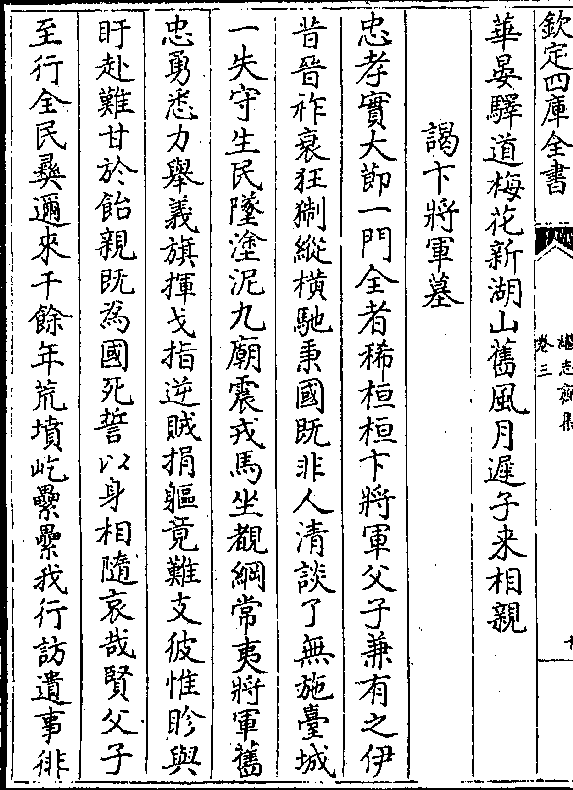 欽定四庫全書
卷三
華晏驛道梅花新湖山舊風月遲子来相親
謁卞將軍墓
忠孝實大節一門全者稀桓桓卞將軍父子兼有之伊
昔晉祚衰狂猘縱横馳秉國既非人清談了無施臺城
一失守生民墜塗泥九廟震戎馬坐觀綱常夷將軍舊
忠勇悉力舉義旗揮戈指逆賊捐軀竟難支彼惟眕與
盱赴難甘於飴親既為國死誓以身相隨哀哉賢父子
至行全民彞邇來千餘年荒墳屹纍纍我行訪遺事徘